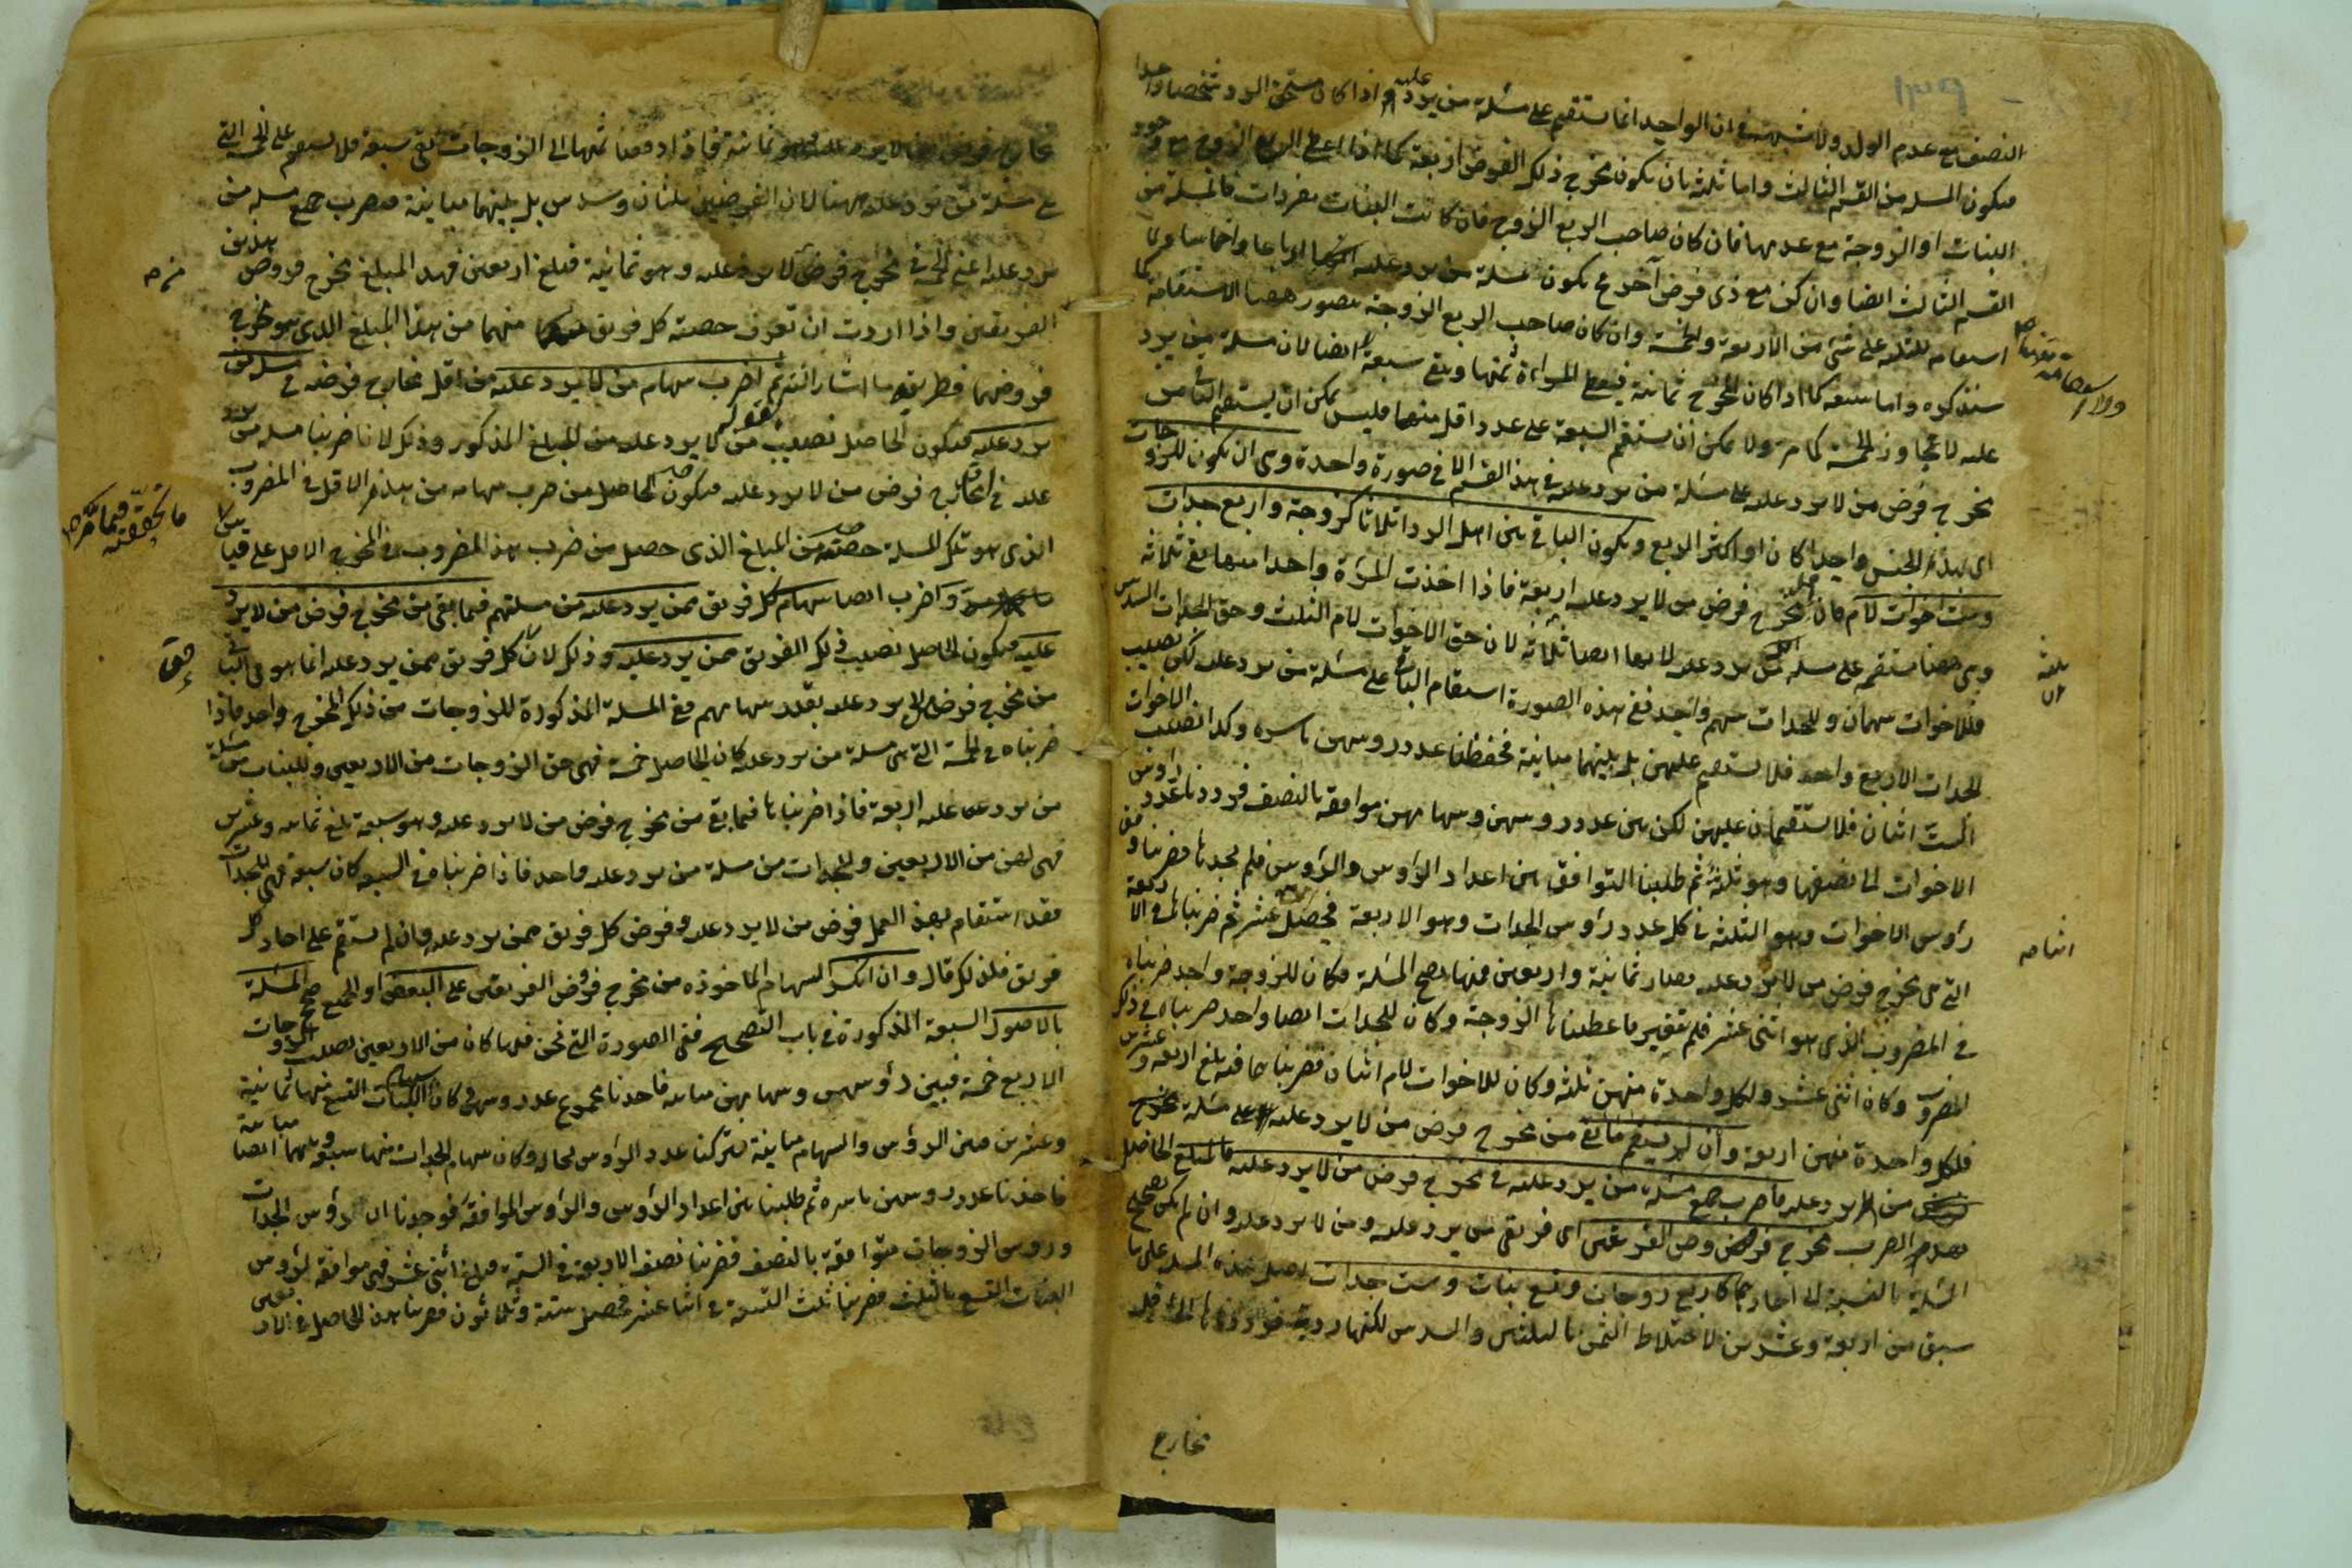 النصف مع عدم الولد ولا شبهة في ان الواحد انما يستقيم على مسئلة من يرد عليه اذا كان مستحق الرد شخصا واحدا
فيكون المسئلة من القسم الثالث واما ثلثة بان يكون مخرج ذلك الفرض اربعة كما اذا اعطى الربع الزوج مع وجود
البنات او الزوجة مع عدمها فان كان صاحب الربع الزوج فان كانت البنات مفردات فالمسئلة من
القسم الثالث ايضا وان كن مع ذي فرض آخر يكون مسئلة من يرد عليه ارباعا واخماسا ولا
استقامة للثلثة على شئ من الاربعة والخمسة وان كان صاحب الربع الزوجة يتصور ههنا الاستقامة كما
سنذكره واما سبعة كما اذا كان المخرج ثمانية فيعطى المراة ثمنها ويبقى سبعة ايضا لان مسئلة من يرد
عليه لا تجاوز الخمسة كما مر ولا يمكن ان يستقيم السبعة على عدد اقل منها فليس يمكن ان يستقيم الباقي من
مخرج فرض من لا يرد عليه على مسئلة من يرد عليه في هذا القسم الا في صورة واحدة وهي ان يكون للزوجات
اي لهذا الجنس واحدا كان او اكثر الربع ويكون الباقي بين اهل الرد اثلاثا كزوجة واربع جدات
وست اخوات لام فان مخرج فرض من لا يرد عليه اربعة فاذا اخذت المرأة واحدا منها بقي ثلاثة
وهي ههنا مستقيمة على مسئلة من يرد عليه لانها ايضا ثلاثة لان حق الاخوات لام الثلث وحق الجدات السدس
فللاخوات سهمان وللجدات سهم واحد ففي هذه الصورة استقام الباقي على مسئلة من يرد عليه لكن نصيب
الجدات الاربع واحد فلا يستقيم عليهن بل بينهما مباينة فحفظنا عدد رؤسهن باسره وكذا نصيب الاخوات
الست اثنان فلا يستقيمان عليهن لكن بين عدد رؤسهن وسهامهن موافقة بالنصف فرددنا عدد رؤس
الاخوات الى نصفها وهو ثلثة ثم طلبنا التوافق بين اعداد الرؤس والرؤس فلم نجدها فضربنا وفق
رؤس الاخوات وهو الثلثة في كل عدد رؤس الجدات وهو الاربعة فحصل اثنا عشر ثم ضربناها في الاربعة
التي هي مخرج فرض من لا يرد عليه فصار ثمانية واربعين فمنها تصح المسئلة فكان للزوجة واحد ضربناه
في المضروب الذي هو اثنى عشر فلم يتغير فاعطيناها الزوجة وكان للجدات ايضا واحد ضربناه في ذلك
المضروب وكان اثنى عشر ولكل واحدة منهن ثلثة وكان للاخوات لام اثنان فضربناهما فيه بلغ اربعة وعشرين
فلكل واحدة منهن اربعة وان لم يستقم ما بقي من مخرج فرض من لا يرد عليه على مسئلة
من يرد عليه فاضرب جميع مسئلة من يرد عليه في مخرج فرض من لا يرد عليه فالمبلغ الحاصل
بهذا الضرب مخرج فروض الفريقين اي فريقي من يرد عليه ومن لا يرد عليه وان لم يكن تصحيح
المسئلة بالنسبة الى آحادهما كاربع زوجات وتسع بنات وست جدات اصل هذه المسئلة على ما
سبق من اربعة وعشرين لاختلاط الثمن بالثلثين والسدس لكنها ردية فرددناها الى اقل
مخارج
ثلثة
اثنا
مخارج فرض من لا يرد عليه وهو ثمانية فاذا دفعنا ثمنها الى الزوجات بقي سبعة فلا يستقيم على الخمسة التي
هي مسئلة من يرد عليه ههنا لان الفرضين ثلثان وسدس بل بينهما مباينة فضرب جميع مسئلة من
يرد عليه اعني الخمسة في مخرج فرض من لا يرد عليه وهو ثمانية فبلغ اربعين فهذا المبلغ مخرج فروض هذين
الفريقين واذا اردت ان تعرف حصة كل فريق منهما من هذا المبلغ الذي هو مخرج
فروضهما فطريقه ما اشار اليه بقوله ثم اضرب سهام من لا يرد عليه من اقل مخارج فرضه في مسئلة من
يرد عليه فيكون الحاصل نصيب من لا يرد عليه من المبلغ المذكور وذلك لانا ضربنا مسئلة من يرد
عليه في مخارج فرض من لا يرد عليه فيكون الحاصل من ضرب سهامه من هذا الاقل في المضروب
الذي هو تلك المسئلة حصته من المبلغ الذي حصل من ضرب هذا المضروب في المخرج الاقل على قياس
ما تحققته فيما مر
واضرب ايضا سهام كل فريق ممن يرد عليه من مسئلتهم فيما بقي من مخرج فرض من لا يرد
عليه فيكون الحاصل نصيب ذلك الفريق ممن يرد عليه وذلك لان حق كل فريق ممن يرد عليه انما هو في الباقي
من مخرج فرض من لا يرد عليه بقدر سهامهم ففي المسئلة المذكورة للزوجات من ذلك المخرج واحد فاذا
ضربناه في الخمسة التي هي مسئلة من يرد عليه كان الحاصل خمسة فهي حق الزوجات من الاربعين وللبنات من مسئلة
من يرد عليه اربعة فاذا ضربناها فيما بقي من مخرج فرض من لا يرد عليه وهو سبعة بلغ ثمانية وعشرين
فهي لهن من الاربعين وللجدات من مسئلة من يرد عليه واحد فاذا ضربناه في السبعة كان سبعة فهي للجدات
فقد استقام بهذا العمل فرض من لا يرد عليه وفرض كل فريق ممن يرد عليه وان لم يستقم على احاد كل
فريق فلذلك قال وان انكسر السهام الماخوذة من مخرج فروض الفريقين على البعض او الجميع صحح المسئلة
بالاصول السبعة المذكورة في باب التصحيح ففي الصورة التي نحن فيها كان من الاربعين نصيب الزوجات
الاربع خمسة فبين رؤسهن وسهامهن مباينة فاخذنا مجموع عدد رؤسهن وكان سهام البنات التسع منها ثمانية
وعشرين فبين الرؤس والسهام مباينة فتركنا عدد الرؤس بحاله وكان سهام الجدات منها سبعة وبينهما ايضا مباينة
فاخذنا عدد رؤسهن باسره ثم طلبنا بين اعداد الرؤس والرؤس الموافقة فوجدنا ان رؤس الجدات
ورؤس الزوجات متوافقة بالنصف فضربنا نصف الاربعة في الستة فبلغ اثنى عشر فهي موافقة لرؤس
البنات التسع بالثلث فضربنا ثلث التسعة في اثنا عشر فحصل ستة وثلاثون فضربنا هذا الحاصل في الاربعين
حق